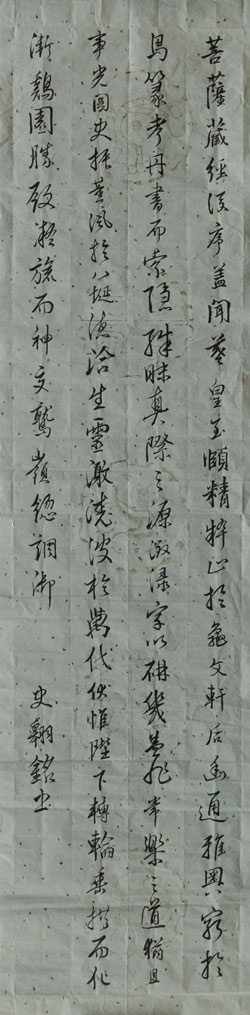 菩薩藏經後序蓋聞羲皇至頤精粹止於龜文軒后幽通雅奧窮於
鳥篆考丹書而索隱殊昧真際之源徵淥字以研幾蓋非常樂之道猶且
事光圖史振薰風於八埏德洽生靈激澆波於萬代伏惟陛下轉輪垂拱而化
漸鷄園勝殿凝旒而神交鷲嶺總調御
史翱銘書